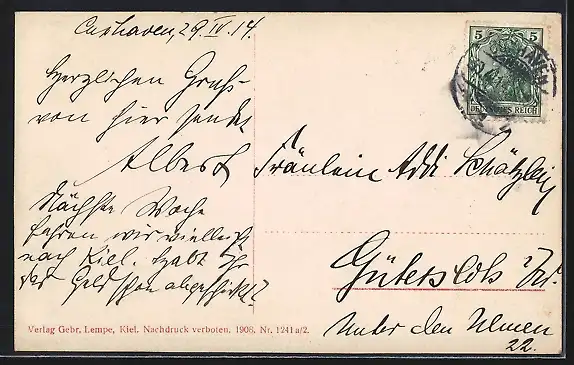 Cuxhaven, 29.IV.14.
Herzlichen Gruß
von hier sendet
Albert
Nächste Woche
fahren wir vielleicht
nach Kiel. Habt Ihr
das Geld schon abgeschickt?
Fräulein Addi Schätzlein
Gütersloh i/W.
Unter den Ulmen
22.
5 5
DEUTSCHES REICH
Verlag Gebr. Lempe, Kiel. Nachdruck verboten. 1908. Nr. 1241 a/2.